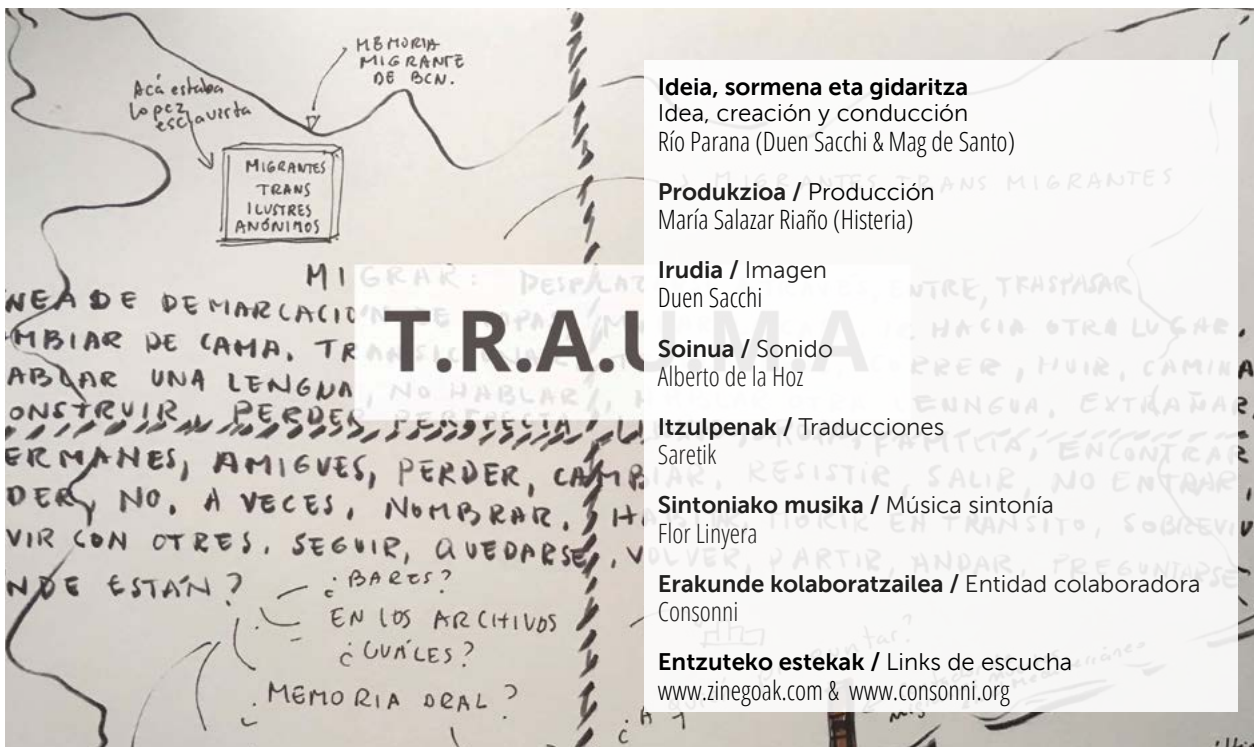 MEMORIA
MIGRANTE
DE BCN.
Acá estaba
Lopez
esclavista
MIGRANTES
TRANS
ILUSTRES
ANÓNIMOS
MIGRANTES TRANS MIGRANTES
MIGRAR: ENTRE, TRASPASAR
NEA DE DEMARCACIÓN DE HACIA OTRO LUGAR,
MBIAR DE CAMA, CORRER, HUIR, CAMINA
ABLAR UNA LENGUA, NO HABLAR, LENNGUA, EXTRAÑAR
ONSTRUIR, PERDER FAMILIA, ENCONTRAR
ERMANES, AMIGUES, PERDER, CAMBIAR, RESISTIR, SALIR, NO ENTRAR
DER, NO, A VECES, NOMBRAR, MORIR EN TRÁNSITO, SOBREVIV
VIR CON OTRES. SEGUIR, QUEDARSE, VOLVER, PARTIR, ANDAR, PREGUNTARSE
NDE ESTÁN?
¿BARES?
EN LOS ARCHIVOS
¿CUÁLES?
¿MEMORIA ORAL?
T.R.A.U.M.A
Ideia, sormena eta gidaritza
Idea, creación y conducción
Río Parana (Duen Sacchi & Mag de Santo)
Produkzioa / Producción
María Salazar Riaño (Histeria)
Irudia / Imagen
Duen Sacchi
Soinua / Sonido
Alberto de la Hoz
Itzulpenak / Traducciones
Saretik
Sintoniako musika / Música sintonía
Flor Linyera
Erakunde kolaboratzailea / Entidad colaboradora
Consonni
Entzuteko estekak / Links de escucha
www.zinegoak.com & www.consonni.org